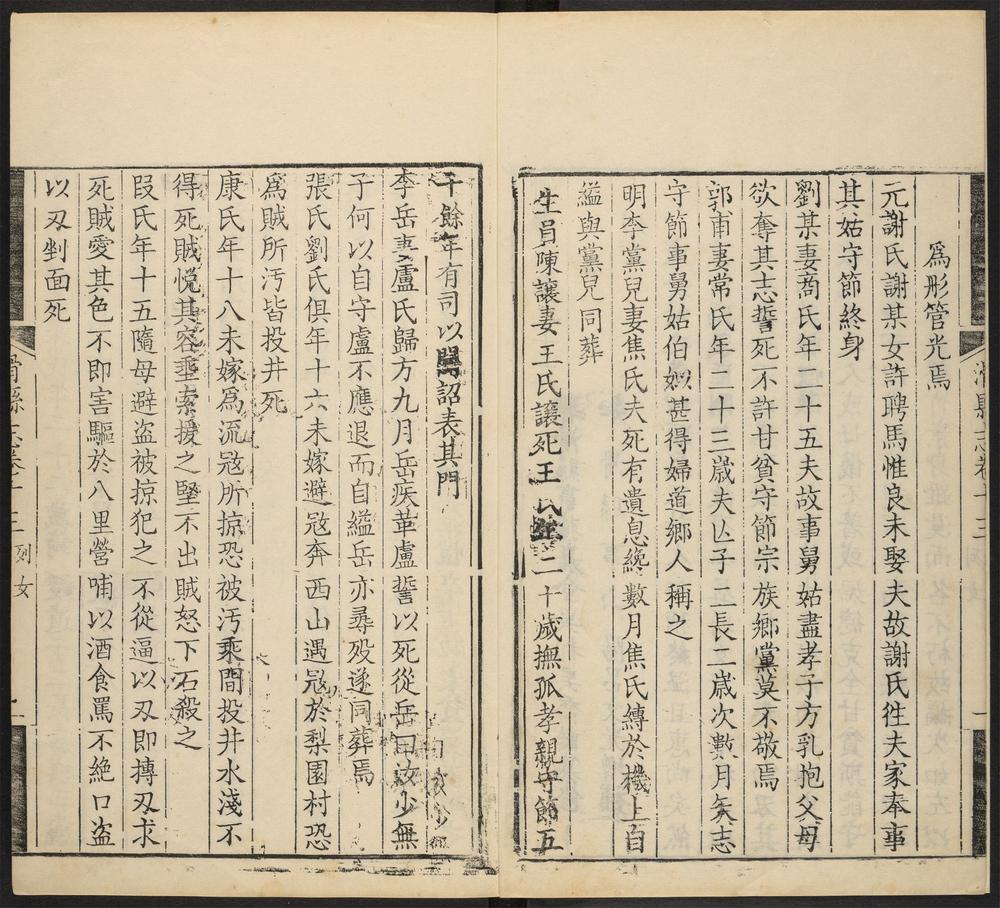 為彤管光焉
元謝氏謝某女許聘馬惟良未娶夫故謝氏徃夫家奉事
其姑守節終身
劉某妻喬氏年二十五夫故事舅姑盡孝子方乳抱父母
欲奪其志誓死不許甘貧守節宗族鄉黨莫不敬焉
郭甫妻常氏年二十三歳夫亾子一長二歳次數月矢志
守節事舅姑伯姒甚得婦道鄉人稱之
明李黨兒妻焦氏夫死有遺息纔數月焦氏縛於機上自
縊與黨兒同葬
生員陳讓妻王氏讓死王氏二十歲撫孤孝親守節五
十餘年有司以聞詔表其門
李岳妻盧氏歸方九月岳疾革盧誓以死從岳曰汝少無
子何以自守盧不應退而自縊岳亦尋殁遂同葬焉
張氏劉氏俱年十六未嫁避冦奔西山遇冦於梨園村恐
爲賊所汚皆投井死
康氏年十八未嫁爲流冦所掠恐被汚乘間投井水淺不
得死賊悅其容垂索援之堅不出賊怒下石殺之
段氏年十五隨母避盗被掠犯之不從逼以刃即摶刃求
死賊愛其色不即害驅於八里營哺以酒食罵不絶口盗
以刃剉面死
滑縣志卷十三 列女